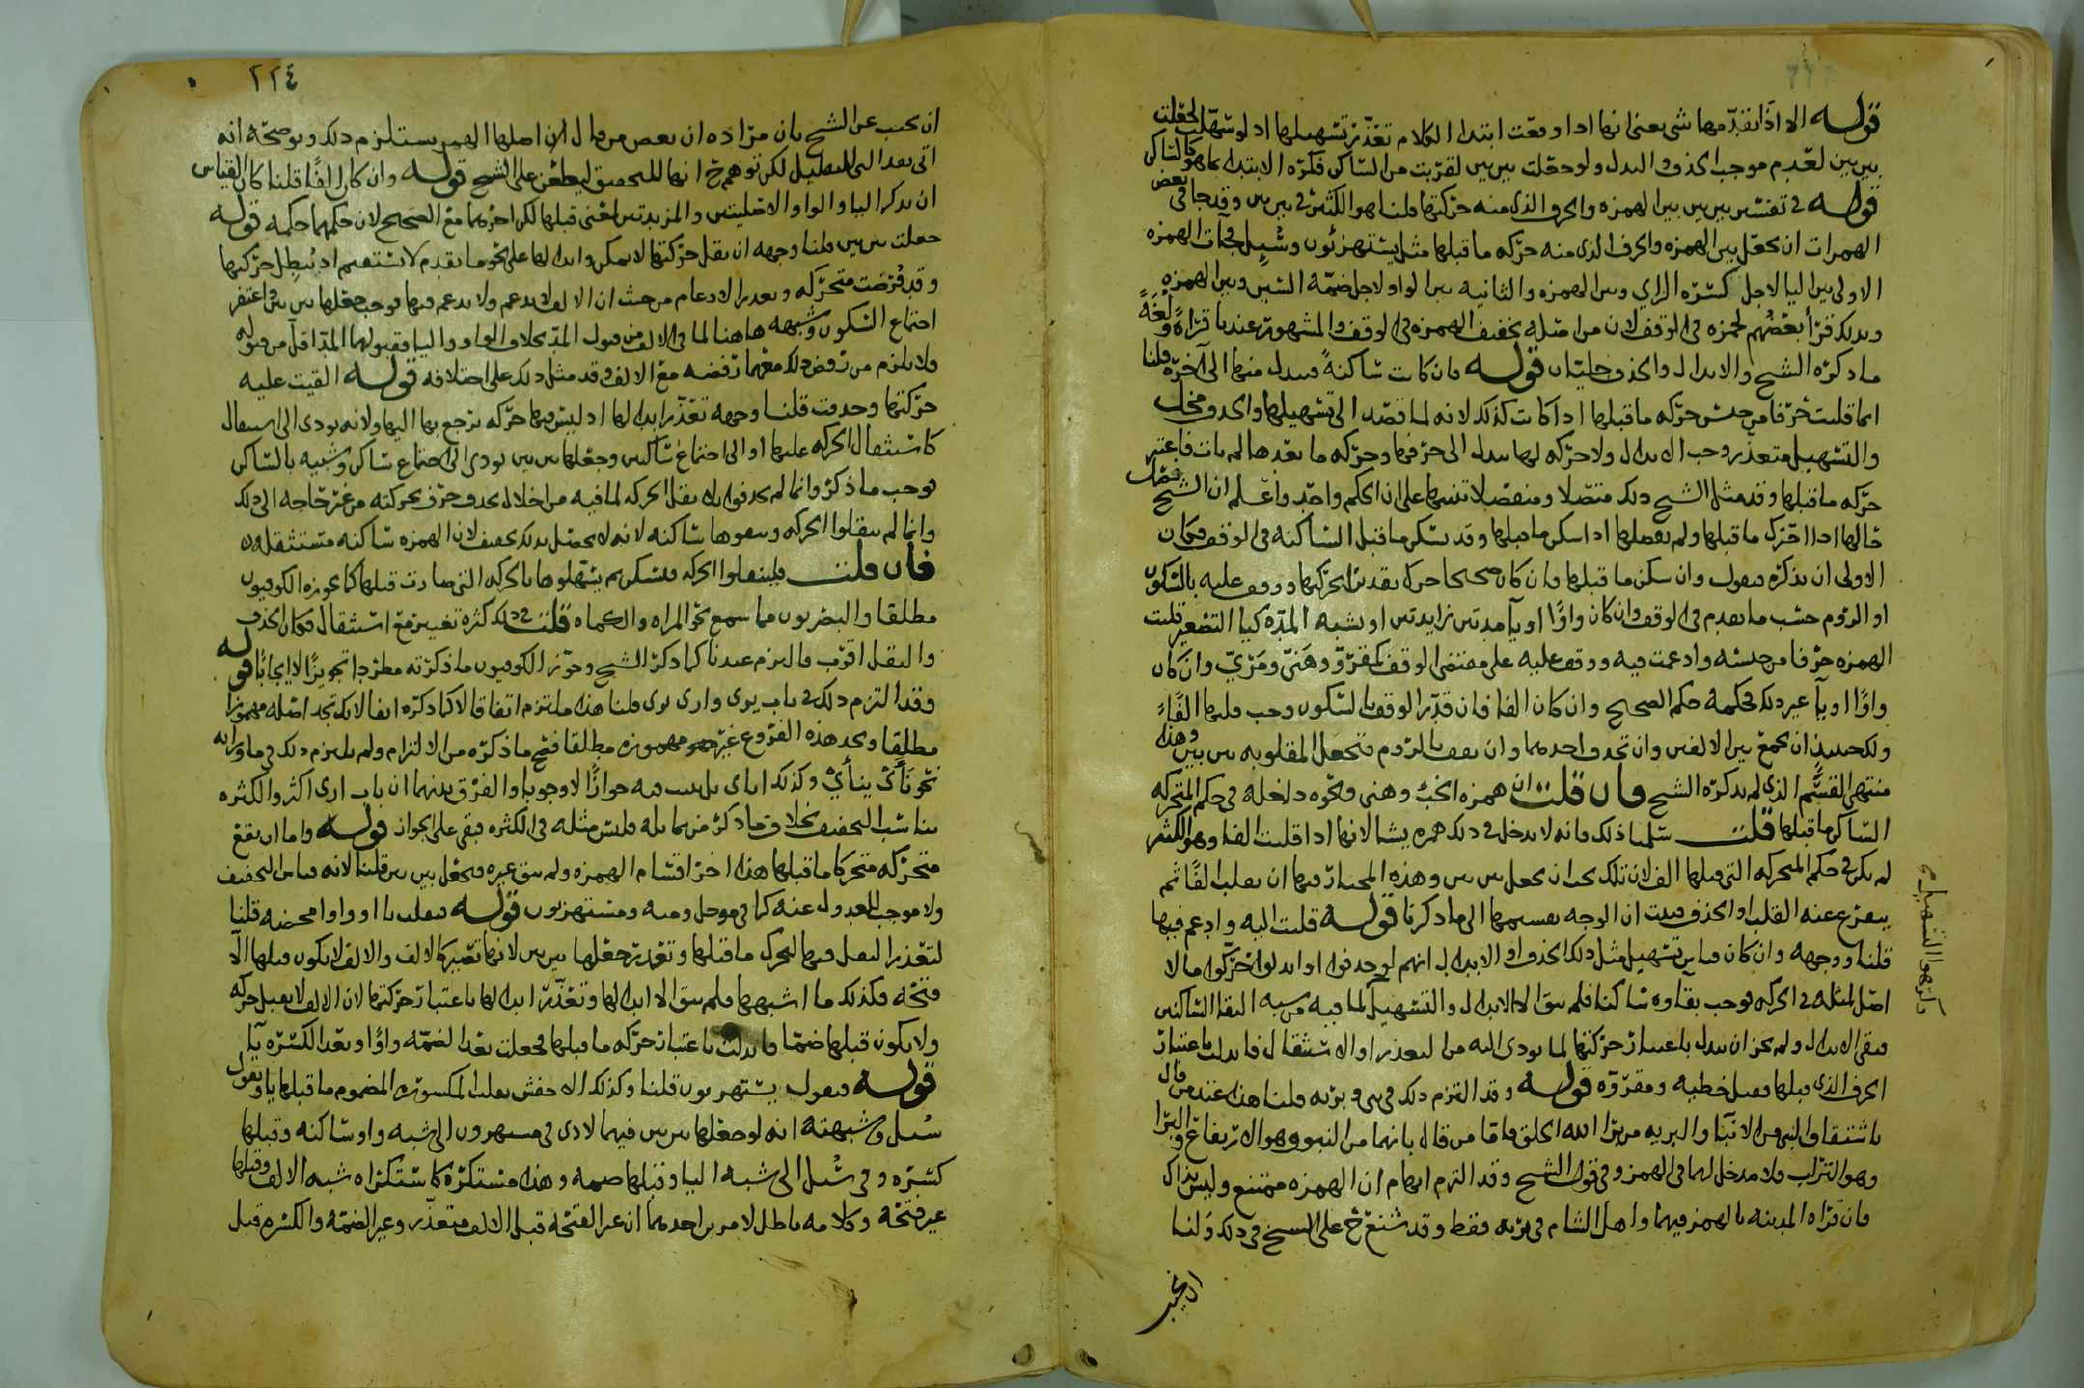 قوله الا اذا تقدمها شى يعنى انها اذا وقعت ابتدا الكلام تعذر تسهيلها اذ لو سهلت لجعلت
بين بين لعدم موجب الحذف والبدل ولو جعلت بين بين لقربت من الساكن فكره الابتدا بها هو كالساكن
قوله فى تفسير بين بين بين الهمزه والحرف الذى منه حركتها قلنا هو الكثير فى بين بين وقد جا فى بعض
الهمزات ان تجعل بين الهمزه والحرف الذى منه حركه ما قبلها مثل يستهزئون وسُئِل فجآت الهمزه
الاولى بين اليا لاجل كسره الزاي وبين الهمزه والثانيه بين الواو لاجل ضمه السين وبين الهمزه
وبذلك قرأ بعضهم لحمزه فى الوقف لان من اصله تخفيف الهمزه فى الوقف والمشهور عندنا قراةً ولغةً
ما ذكره الشيخ والابدال والحذف جليّان قوله فان كانت ساكنةً فتبدل منها الى آخره قلنا
انما قلبت حرفا من جنس حركه ما قبلها اذا كانت كذلك لانه لما قصد الى تسهيلها والحذف مخل
والتسهيل متعذر وجب الابدال ولا حركه لها تبدل الى حرفها وحركه ما بعدها لم يات فاعتبر
حركه ما قبلها وقد مثل الشيخ ذلك متصلا ومنفصلا تنبيها على ان الحكم واحد واعلم ان الشيخ تمم
حالها اذا تحرك ما قبلها ولم يفصلها اذا سكن ما قبلها وقد يسكن ما قبل الساكنه فى الوقف فكان
الاولى ان يذكره فيقول وان سكن ما قبلها فان كان صحيحا حرك بقدير الحركتها ووقف عليه بالسكون
او الروم حسب ما تقدم فى الوقف وان كان واوًا او يآ مدتين زايدتين او يشبه المدّه كيا التصغير قلبت
الهمزه حرفا من جنسه وادغمت فيه ووقف عليه على مقتضى الوقف كمقروّ وهَنىّ ومَرىّ وان كان
واوًا او يآ غير ذلك فحكمه حكم الصحيح وان كان الفا فان قدّر الوقف بالسكون وجب قلبها الفًا
ولك حينيذٍ ان تجمع بين الالفين وان تحذف احدهما وان تقف بالروم فتجعل المقلوبه بين بين وهذا
منتهى القسم الذى لم يذكره الشيخ فان قلت ان همزه الخبْ وهنى ونحوه داخله فى حكم المتحركه
الساكن ما قبلها قلت سلمنا ذلك فانه لا يدخل فى ذلك همزه يشا لانها اذا قلبت الفا وهو الكثير
لم يكن فى حكم المتحركه التى قبلها الف لان تلك يجب ان تجعل بين بين وهذه المختار فيها ان تقلب الفًا ثم
يتفرع عنه القلب او الحذف فثبت ان الوجه تقسيمها الى ما ذكرنا قوله قلبت اليه وادغم فيها
قلنا ووجهه وان كان قياس تسهيل مثل ذلك الحذف او الابدال انهم لو حذفوا او ابدلوا حركوا ما لا
اصل لمثله فى الحركه فوجب بقاوه ساكنا فلم يبق الا الابدال والتسهيل لما فيه من شبه التقا الساكنين
فبقى الابدال ولم يجز ان يبدل باعتبار حركتها لما يودى اليه من التعذر او الاستثقال فابدلت باعتبار
الحرف الذى قبلها فقيل خطيه ومقروّه قوله وقد التزم ذلك فى نبى وبريه قلنا هذا عند من قال
باشتقاق النبى من الانبآ والبريه من برا الله الخلق فاما من قال بانهما من النبو وهو الارتفاع والبرا
وهو التراب فلا مدخل لهما فى الهمز وفى قول الشيخ وقد التزم ايهام ان الهمزه ممتنع وليس بذاك
فان قراه المدينه بالهمز فيهما واهل الشام فى بريه فقط وقد شنع خ على الشيخ فى ذلك ولنا
ان نجيب
تاركهوا التسهيل
٢٢٤
ان نجيب عن الشيخ بان مراده ان بعض من قال ان اصلها الهمز يستلزم ذلك ويوضحه انه
اتى بقد التى للتقليل لكن توهم خ انها للتحقيق ليطعن على الشيخ قوله وان كان الفًا قلنا كان القياس
ان يذكر اليا والواو الاصليتين والمزيدتين لمعنى قبلها لكن اخرهما مع الصحيح لان حكمهما حكمه قوله
جعلت بين بين قلنا وجهه ان نقل حركتها لا يمكن وابدالها على نحو ما تقدم لا يستقيم اذ يُبطل حركتها
وقد فُرضت متحركه وتعذر الادغام من حيث ان الالف لا تدغم ولا يدغم فيها فوجب جعلها بين بين واغتفر
اجتماع السكون وشبهه هاهنا لما فى الالف من قبول المد بخلاف الواو واليا فقبولهما المد اقل من قبوله
ولا يلزم من رفض ذلك معهما رفضه مع الالف وقد مثل ذلك على اختلافه قوله القيت عليه
حركتها وحذفت قلنا وجهه تعذر ابدالها اذ ليس فيها حركه ترجع بها اليها ولانه يودى الى استثقال
كاستثقال الحركه عليها او الى اجتماع ساكنين وجعلها بين بين يودى الى اجتماع ساكن وشبيه بالساكن
فوجب ما ذكر وانما لم يحذفوا بلا نقل الحركه لما فيه من اخلال بحذف حرف بحركته من غير حاجه الى ذلك
وانما لم ينقلوا الحركه ويبقوها ساكنه لانه لا يحصل بذلك تخفيف لان الهمزه ساكنه مستثقله
فان قلت فلينقلوا الحركه فتسكن ثم يسهلوها بالحركه التى صارت قبلها كما يجوزه الكوفيون
مطلقا والبصريون فيما سمع نحو المراه والكماه قلت فى ذلك كثره تغيير مع استثقال فكان الحذف
والنقل اقرب فالتزم عندنا كما ذكر الشيخ وجوّز الكوفيون ما ذكرته مطردا تجويزًا لا ايجابًا قوله
وقد التزم ذلك فى باب يرى وارى يرى قلنا هذا ملتزم اتفاقا الا كما ذكره انفا لانك تجد اصله مهموزا
مطلقا وتجد هذه الفروع غير مهموزه مطلقا فصح ما ذكره من الالتزام ولم يلتزم ذلك فى ما وزانه
نحو نَأَى ينأى وكذلك اناى بل ثبت فيه جوازًا لا وجوبا والفرق بينهما ان باب ارى اكثر والكثره
تناسب التخفيف بخلاف ما ذكر فيما يليه فليس مثله فى الكثره فبقى على الجواز قوله واما ان تقع
متحركه متحركا ما قبلها هذا اخر اقسام الهمزه ولم يبق غيره فتجعل بين بين قلنا لانه قياس التخفيف
ولا موجب للعدول عنه كما فى موجل وميه ومستهزيون قوله فتقلب يا او واوا محضه قلنا
لتعذر النقل فيها لتحرك ما قبلها وتعذر جعلها بين بين لانها تصير كالالف والالف لا يكون قبلها الا
فتحه فكذلك ما اشبهها فلم يبق الا ابدالها وتعذر ابدالها باعتبار حركتها لان الالف لا يقبل حركه
ولا يكون قبلها ضما فابدلت باعتبار حركه ما قبلها فجعلت بعد الضمه واوًا وبعد الكسره يآ
قوله فيقول يستهزيون قلنا وكذلك الاخفش يقلب المكسوره المضموم ما قبلها ياو ويقول
سُيل وشبهته انه لو جعلها بين بين فيهما لادى فى مستهزون الى شبه واو ساكنه وقبلها
كسره وفى سُئل الى شبه اليا وقبلها ضمه وهذا مستكره كاستكراه شبه الالف وقبلها
غير فتحه وكلامه باطل لامرين احدهما ان غير الفتحه قبل الالف متعذر وغير الضمه والكسره قبل